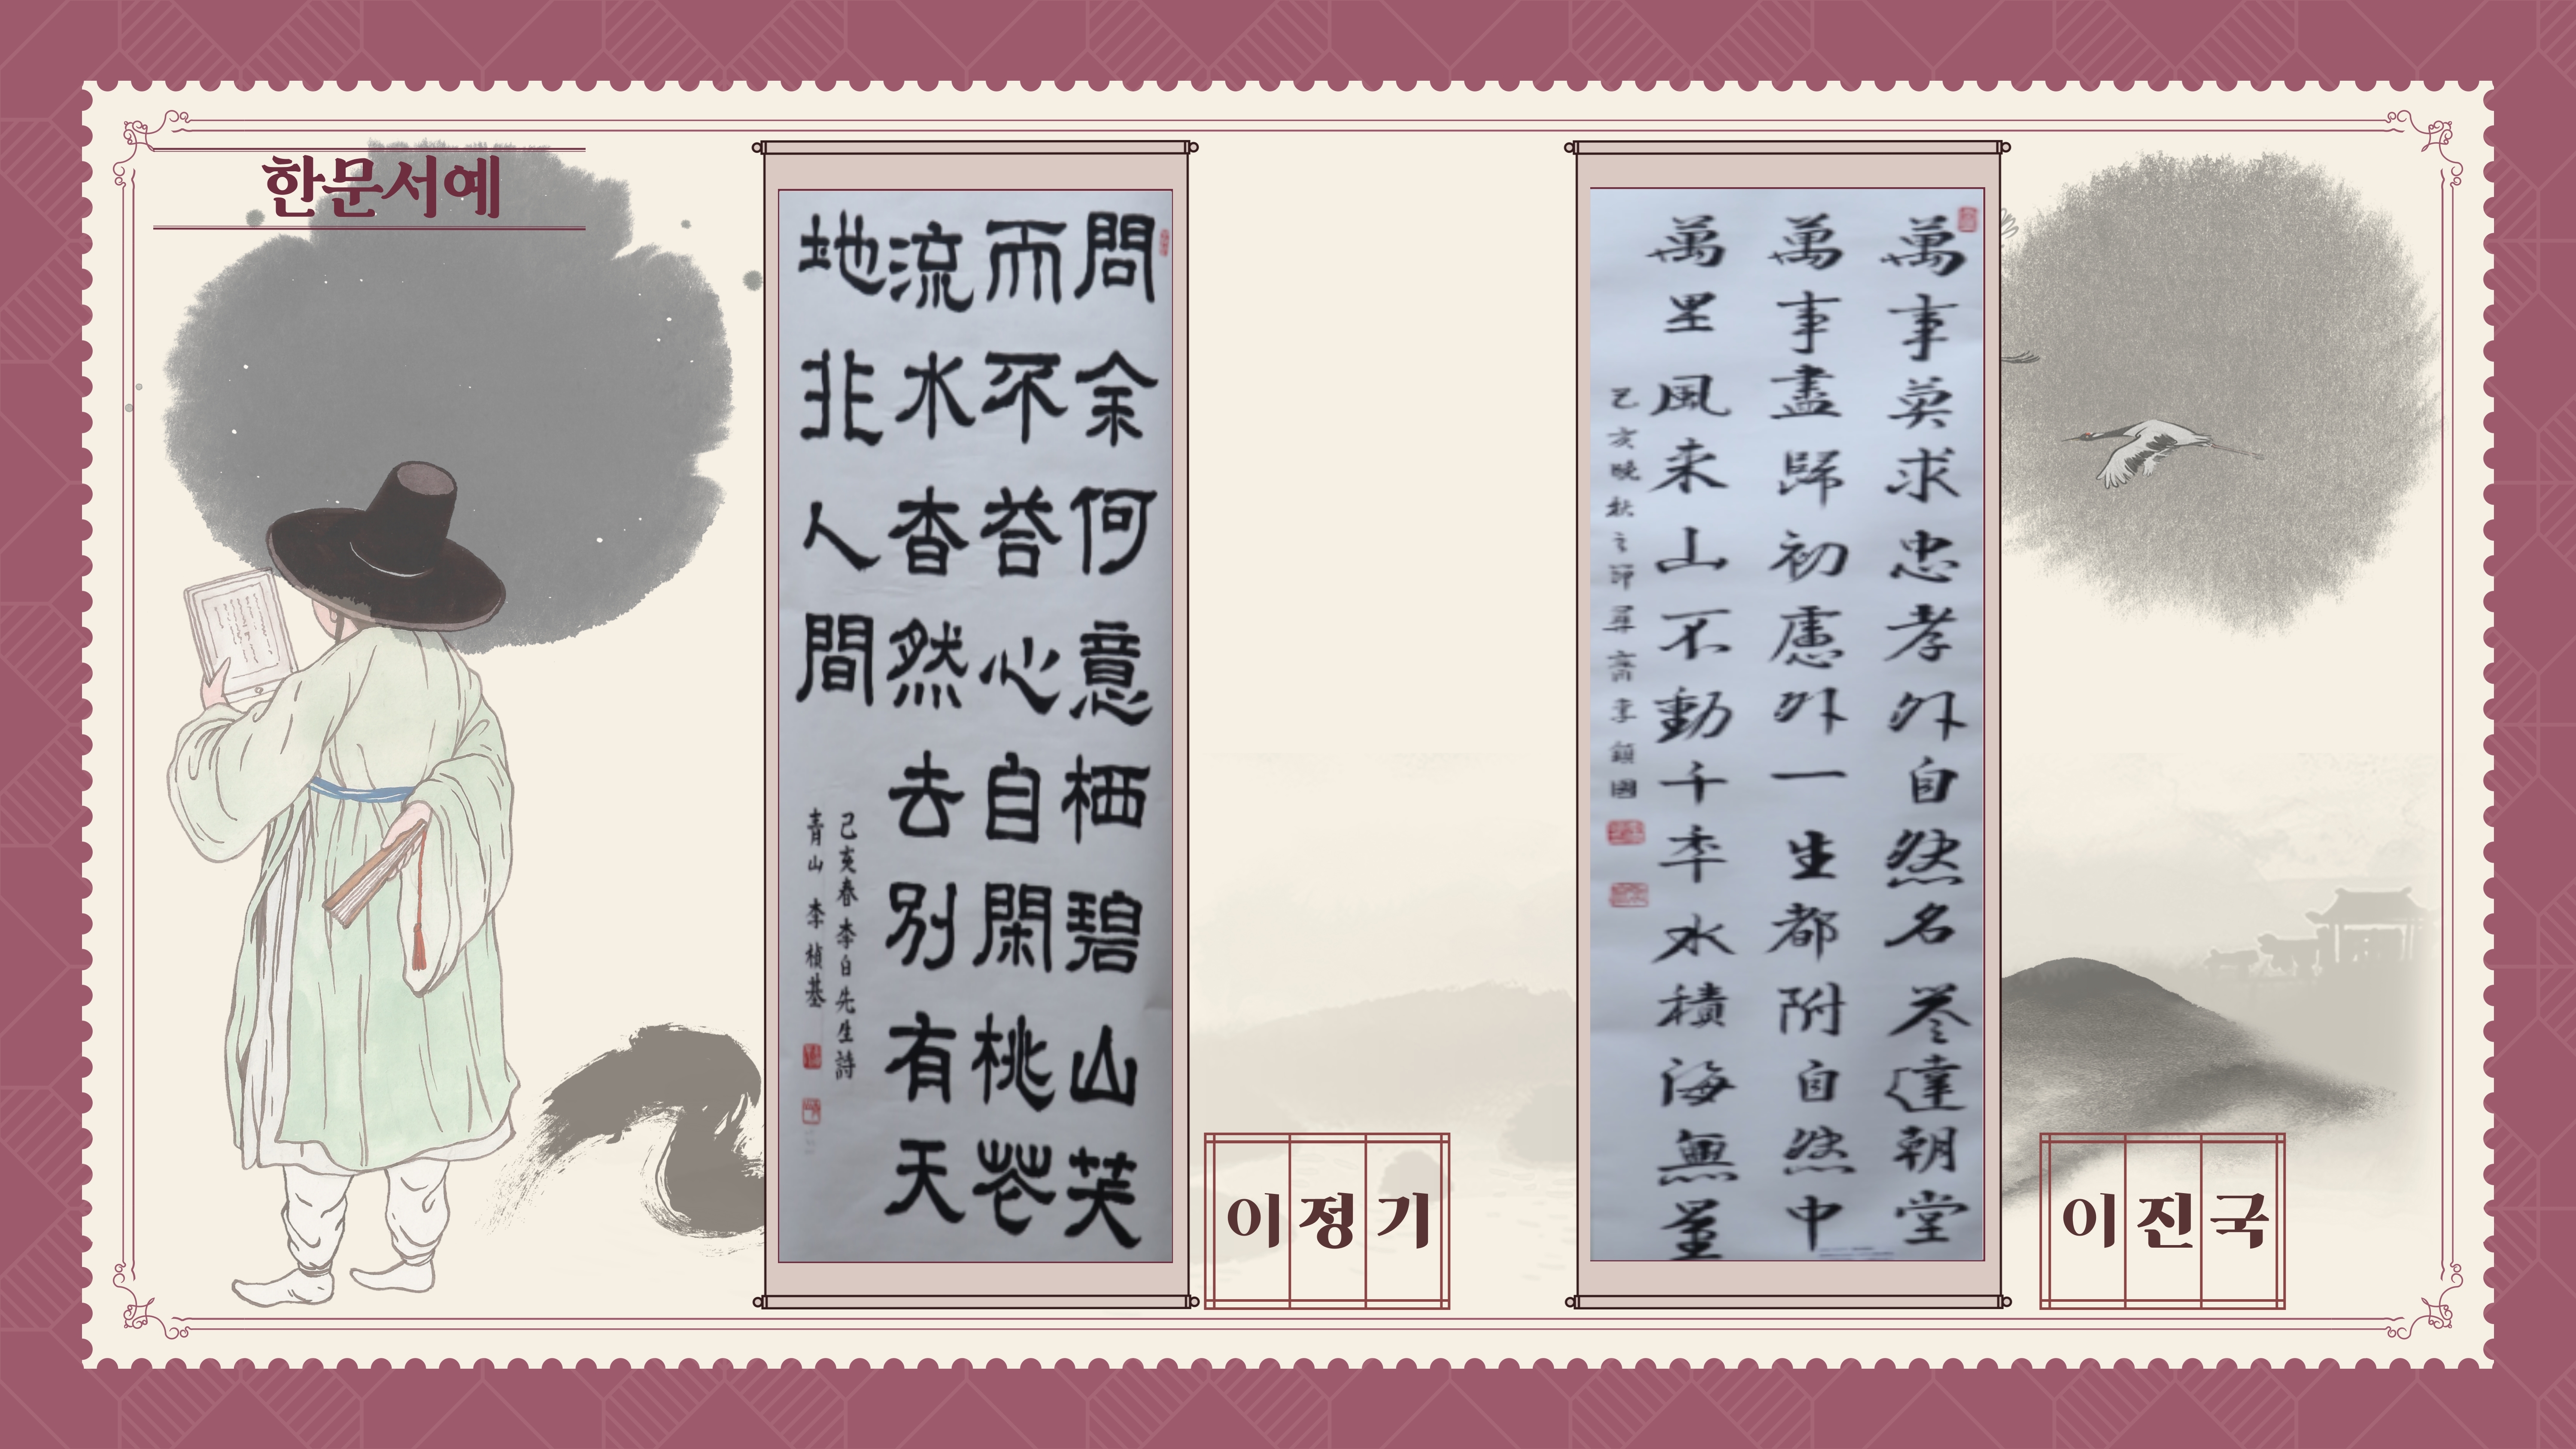 한문서예
問余何意栖碧山笑
而不荅心自閑桃花
流水杳然去別有天
地非人間
己亥春李白先生詩
青山 李楨基
이정기
萬事莫求忠孝外自然名誉達朝堂
萬事盡歸初慮外一生都附自然中
萬里風来山不動千年水積海無量
己亥晩秋之節 齋李鎭國
이진국